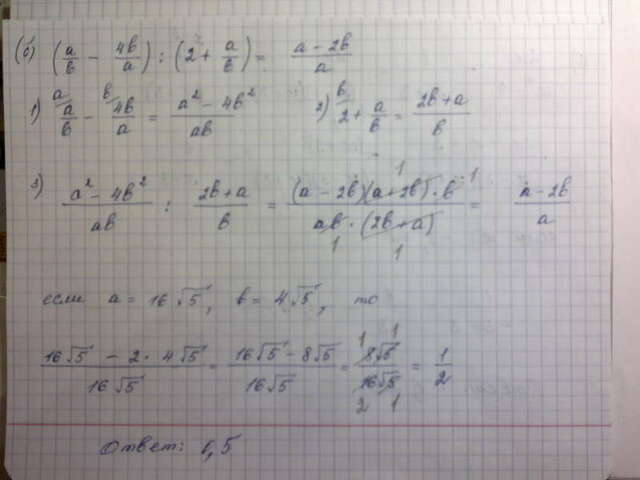 (б) (a/b - 4b/a) : (2 + a/b) = (a - 2b)/a
1) a/b - 4b/a = (a² - 4b²)/ab   2) 2 + a/b = (2b + a)/b
3) (a² - 4b²)/ab : (2b + a)/b = ((a - 2b)(a + 2b) · b)/(ab · (2b + a)) = (a - 2b)/a
если a = 16√5, b = 4√5, то
(16√5 - 2 · 4√5)/16√5 = (16√5 - 8√5)/16√5 = 8√5/16√5 = 1/2
Ответ: 0,5